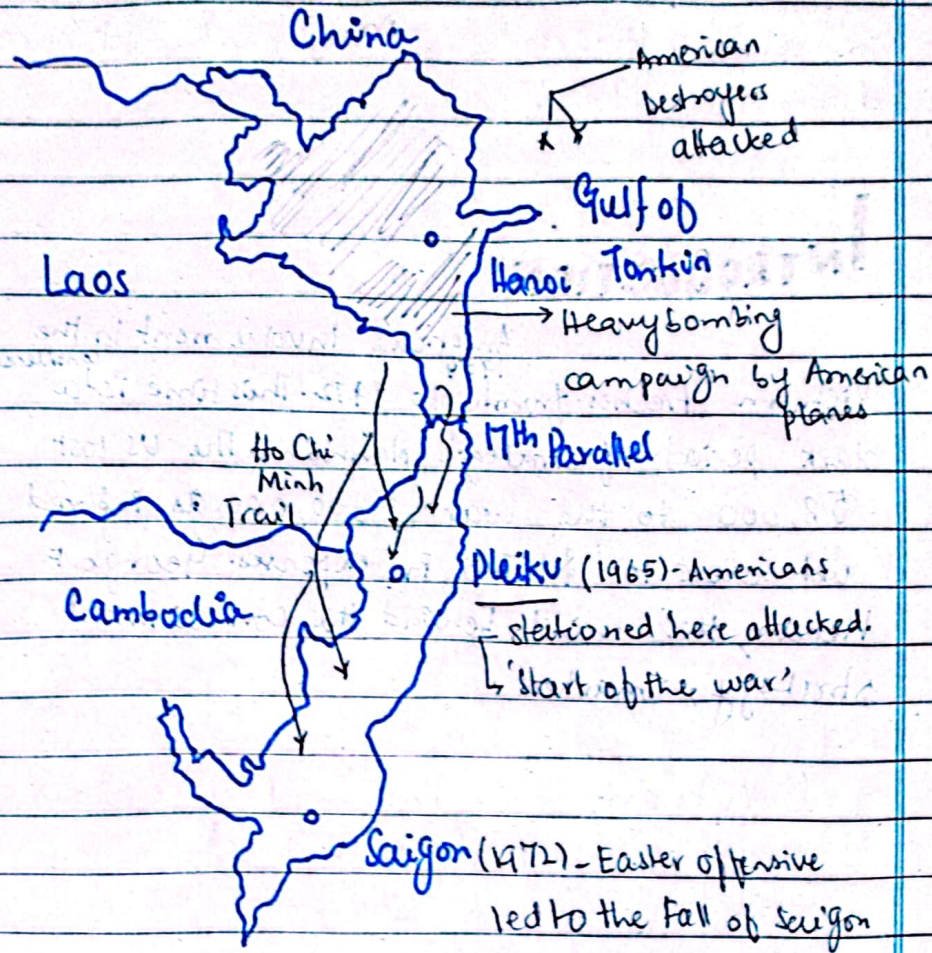 China
American
Destroyers
attacked
Gulf of
Tonkin
Laos
Hanoi
Heavy bombing
campaign by American
planes
17th Parallel
Ho Chi
Minh
Trail
Pleiku (1965) - Americans
- stationed here attacked.
↳ 'start of the war'
Cambodia
Saigon (1972) - Easter offensive
led to the Fall of Saigon